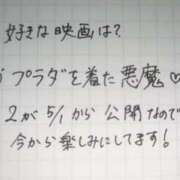 好きな映画は?
プラダを着た悪魔♡
2が5/1から公開なので
今から楽しみにしてます!